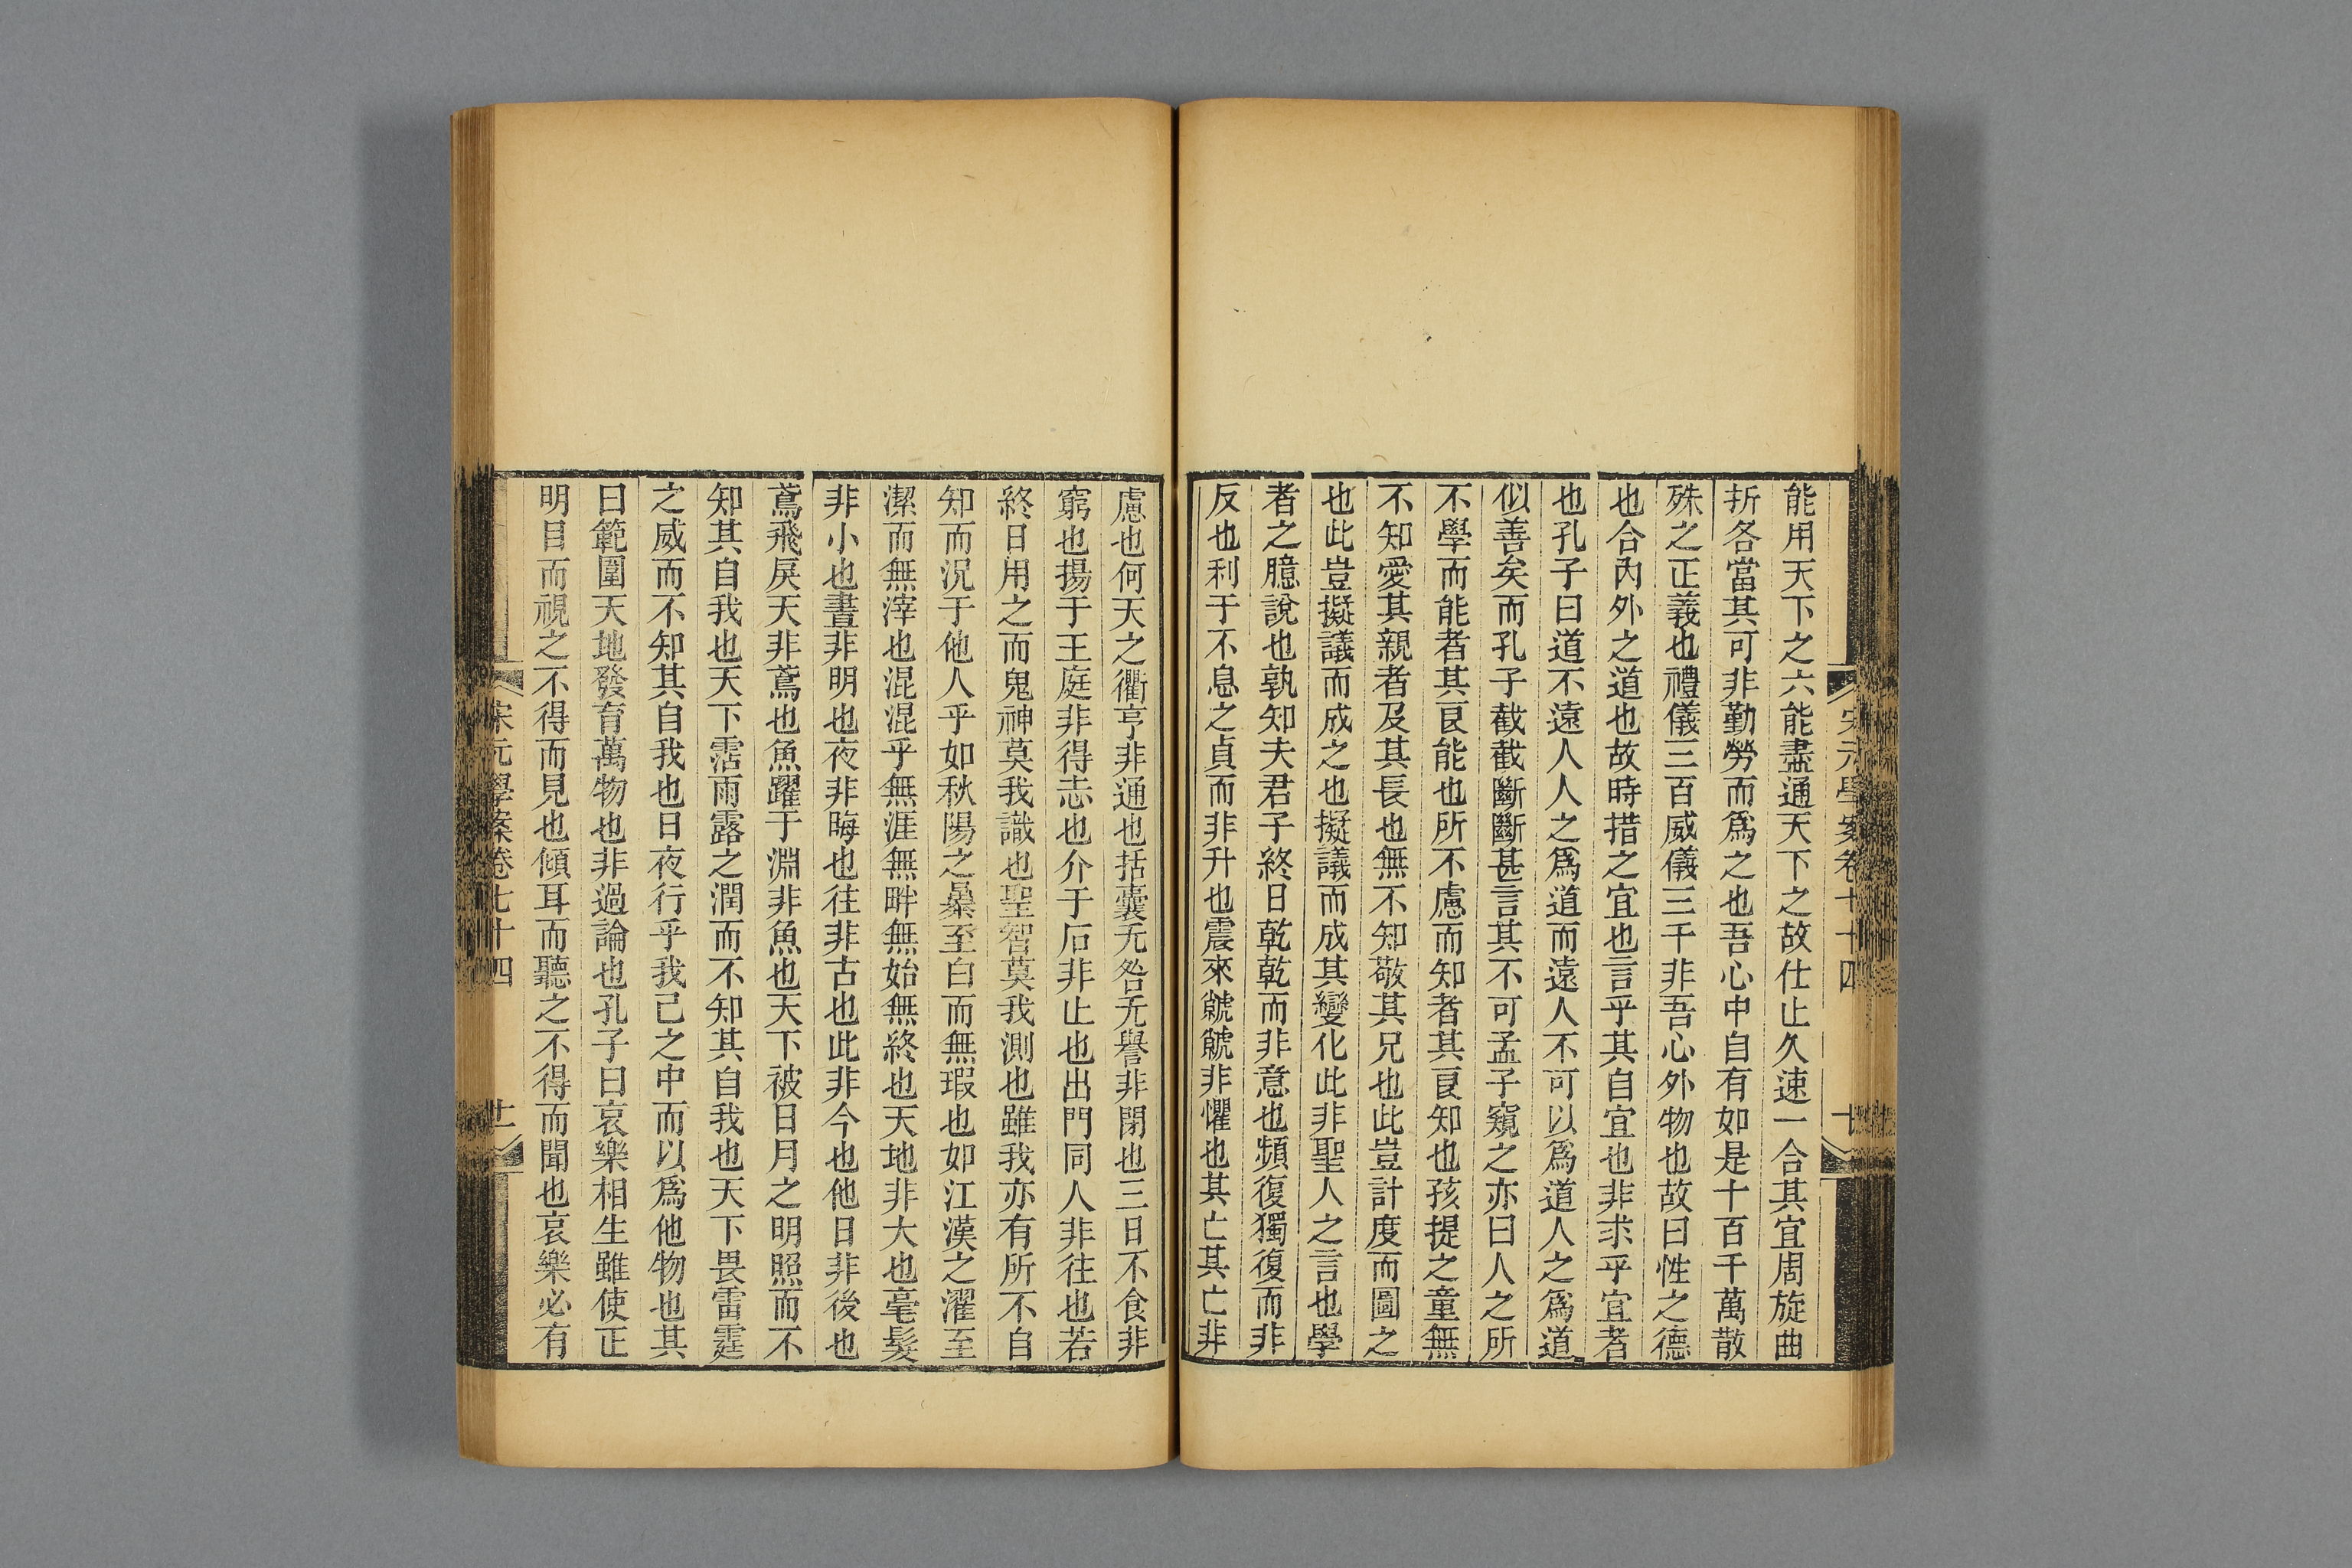 能用天下之六能盡通天下之故仕止久速一合其宜周旋曲
折各當其可非勤勞而爲之也吾心中自有如是十百千萬散
殊之正義也禮儀三百威儀三千非吾心外物也故曰性之德
也合內外之道也故時措之宜也言乎其自宜也非求乎宜者
也孔子曰道不遠人人之爲道而遠人不可以爲道人之爲道
似善矣而孔子截截斷斷甚言其不可孟子窺之亦曰人之所
不學而能者其良能也所不慮而知者其良知也孩提之童無
不知愛其親者及其長也無不知敬其兄也此豈計度而圖之
也此豈擬議而成之也擬議而成其變化此非聖人之言也學
者之臆說也孰知夫君子終日乾乾而非意也頻復獨復而非
反也利于不息之貞而非升也震來虩虩非懼也其亡其亡非
慮也何天之衢亨非通也括囊无咎无譽非閉也三日不食非
窮也揚于王庭非得志也介于石非止也出門同人非往也若
終日用之而鬼神莫我識也聖智莫我測也雖我亦有所不自
知而況于他人乎如秋陽之暴至白而無瑕也如江漢之濯至
潔而無滓也混混乎無涯無畔無始無終也天地非大也毫髮
非小也晝非明也夜非晦也往非古也此非今也他日非後也
鳶飛戾天非鳶也魚躍于淵非魚也天下被日月之明照而不
知其自我也天下霑雨露之潤而不知其自我也天下畏雷霆
之威而不知其自我也日夜行乎我己之中而以爲他物也其
曰範圍天地發育萬物也非過論也孔子曰哀樂相生雖使正
明目而視之不得而見也傾耳而聽之不得而聞也哀樂必有
宋元學案卷七十四